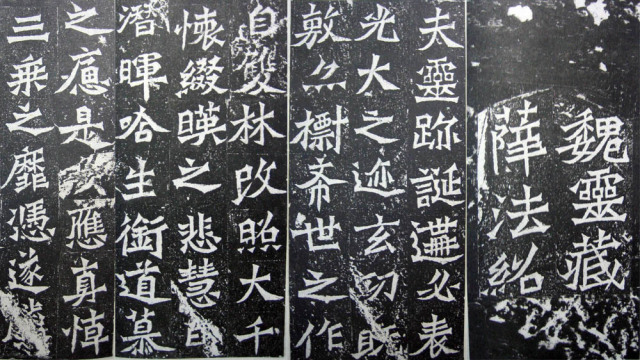 魏靈藏
薛法紹
夫靈跡誕遘必表
光大之迹玄功既
敷亦標希世之作
自雙林改照大千
懷綴暎之悲慧日
潛暉哈生銜道慕
之痛是以應真悼
三乘之靡憑遂騰